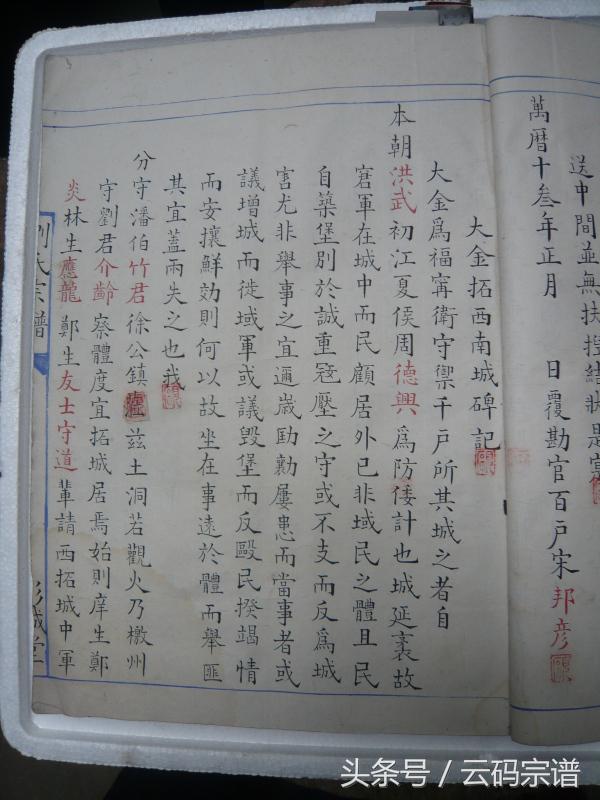 送中間並無扶捏結狀是寔
萬曆十叁年正月 日覆勘官百戶宋邦彦
大金拓西南城碑記
大金爲福寧衛守禦千戶所其城之者自
本朝洪武初江夏侯周德興爲防倭計也城延袤故
窘軍在城中而民顧居外已非域民之體且民
自築堡別於誠重寇壓之守或不支而反爲城
害尤非舉事之宜邇歲勛勷屢患而當事者或
議增城而徙域軍或議毀堡而反毆民揆竭情
而安攘鮮効則何以故坐在事遠於體而舉匪
其宜蓋兩失之也我
分守潘伯竹君徐公鎮茲土洞若觀火乃檄州
守劉君介齡察體度宜拓城居焉始則庠生鄭
炎林生應龍鄭生友士守道輩請西拓城中軍
劉氏宗譜
彭城堂
头条号／云码宗谱